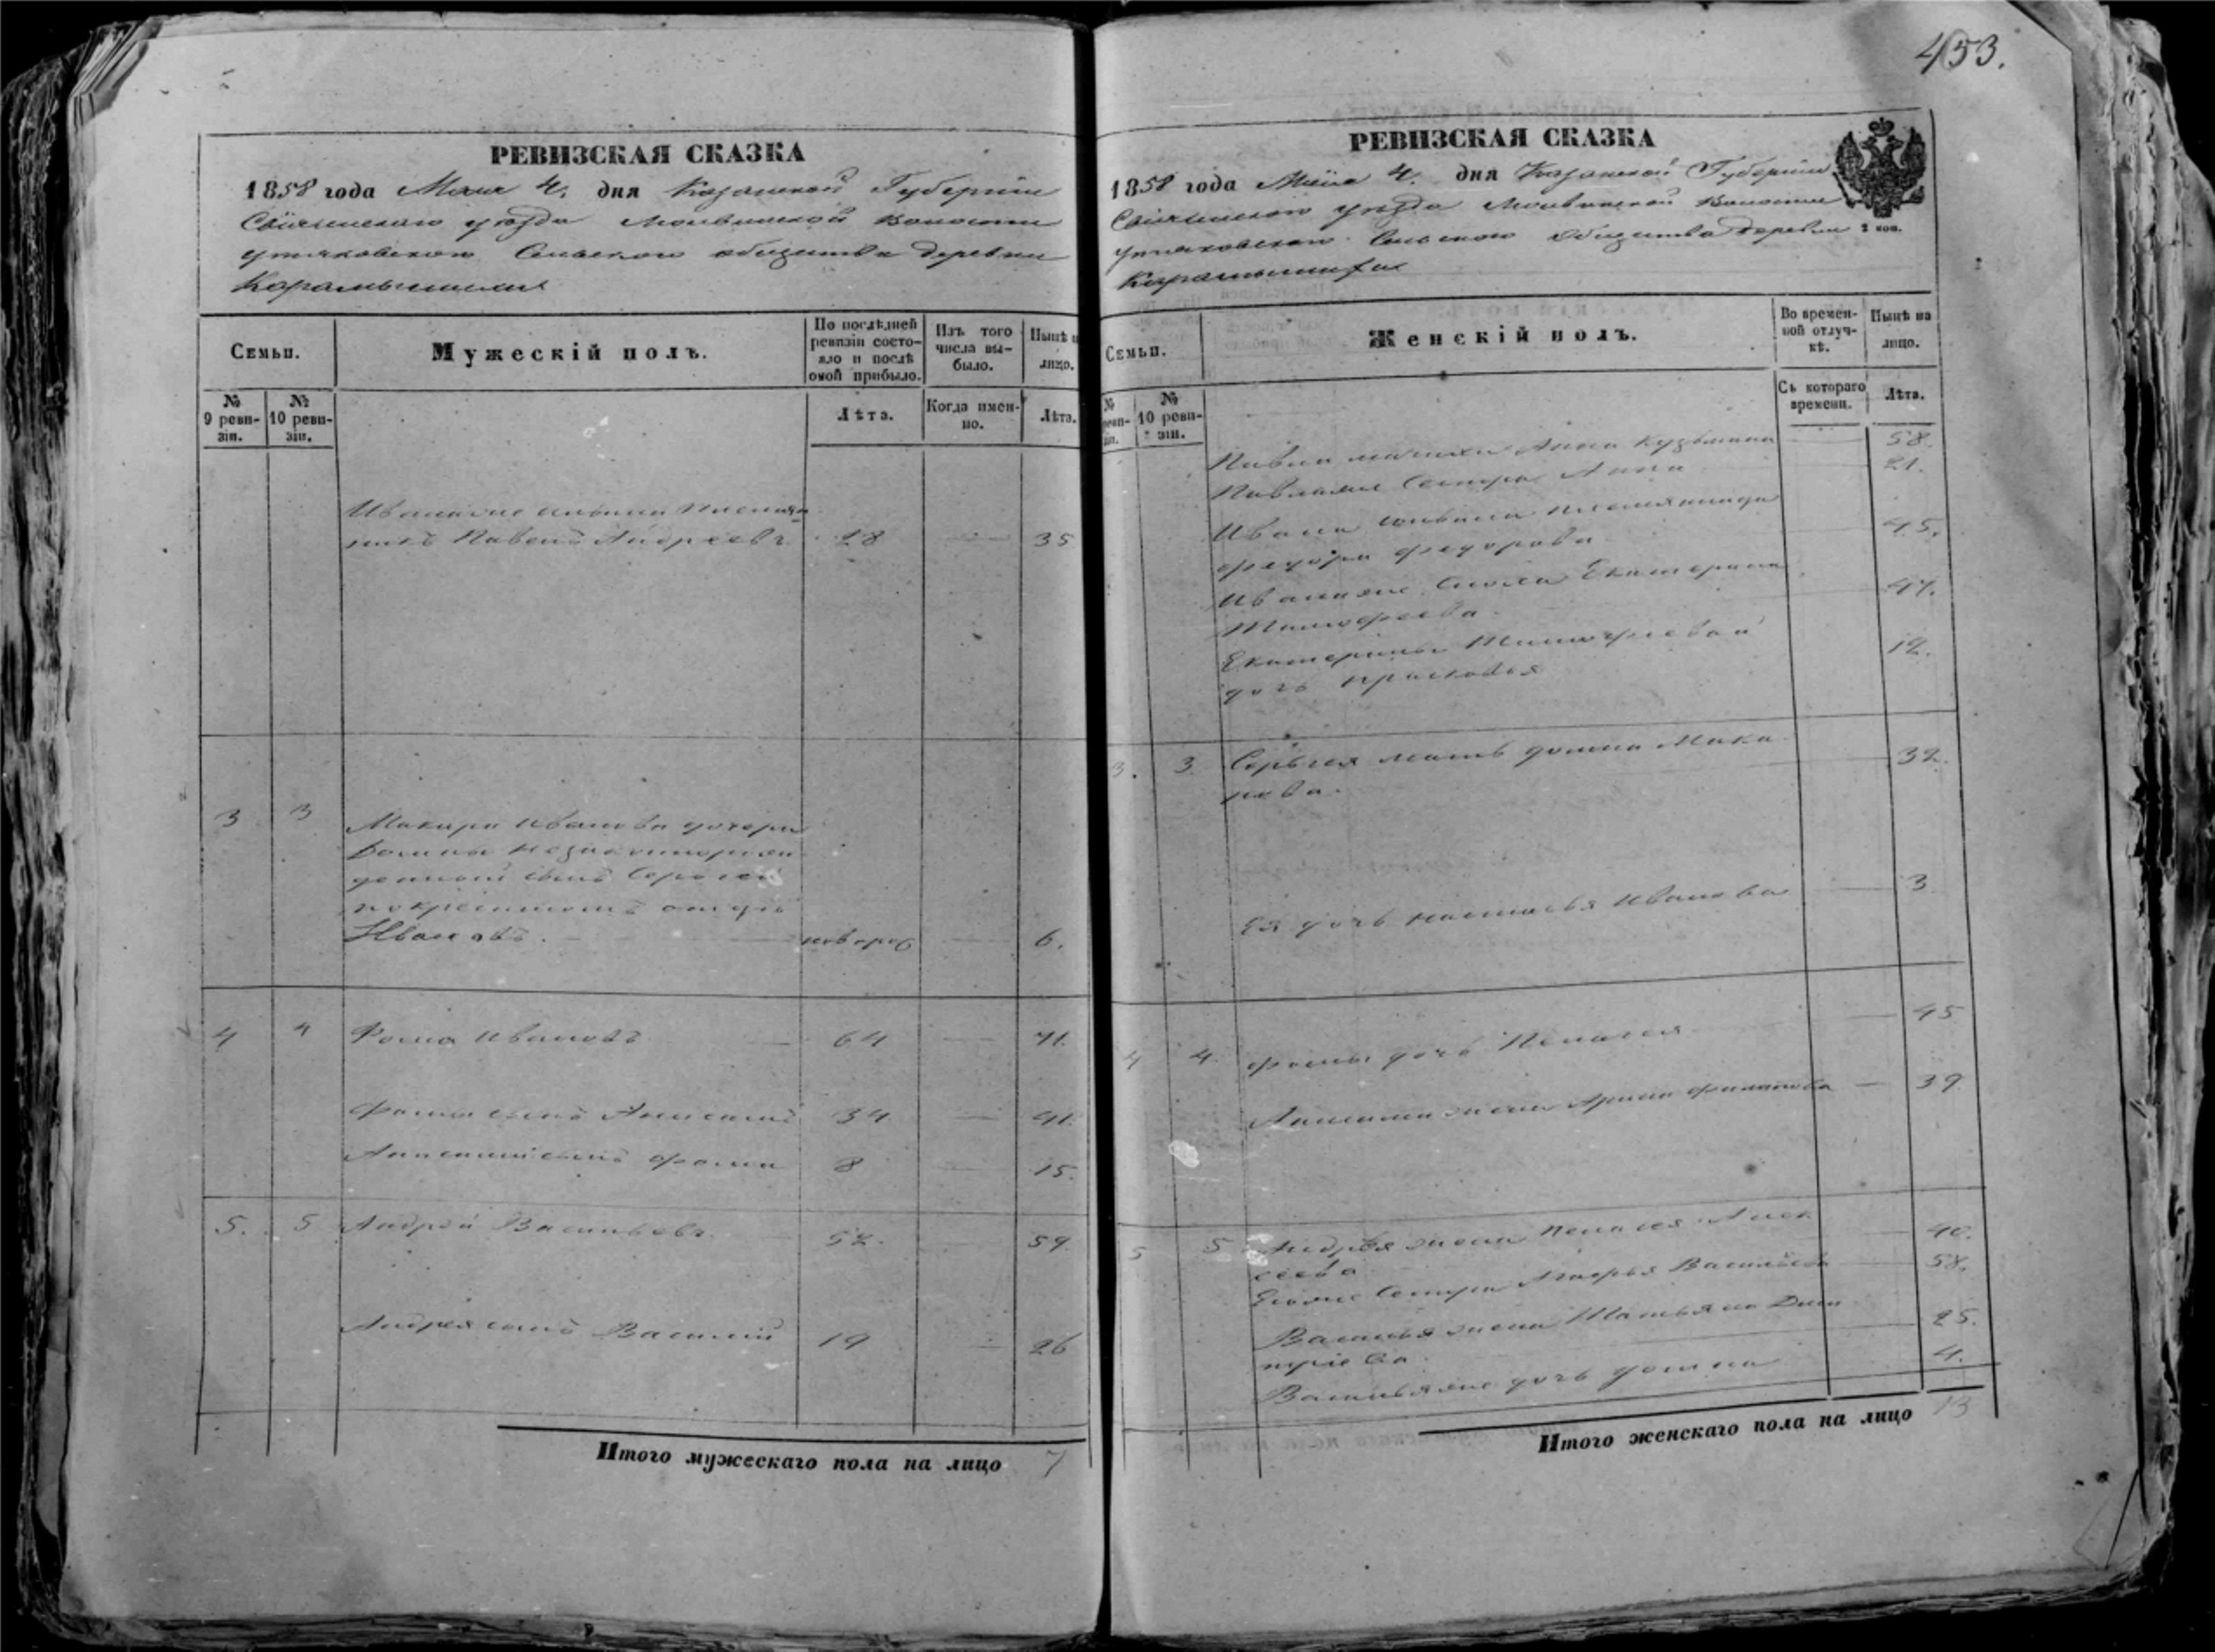 453.
РЕВИЗСКАЯ СКАЗКА
1858 года Мая 4. дня Казанской Губернiи
Свiяжскаго уѣзда Волости
Сельскаго общества деревни
Семьи.
Мужескiй полъ.
По послѣдней ревизiи состояло и послѣ оной прибыло.
Изъ того числа выбыло.
Нынѣ на лицо.
№ 9 ревизiи.
№ 10 ревизiи.
Лѣта.
Когда именно.
Лѣта.
Иванаже племян
никъ Павелъ Андреевъ 28 35
3 3 Макара Иванова дочери
Домны незаконнорож
денный сынъ Сергей
по крестномъ отцѣ
Ивановъ. новорож 6.
4 4 Фома Ивановъ 64 71.
Фомы сынъ Анисимъ 34 41.
Анисима сынъ Фома 8 15.
5. 5 Андрей Васильевъ 52. 59.
Андрея сынъ Василiй 19 26
Итого мужескаго пола на лицо 7
РЕВИЗСКАЯ СКАЗКА
1858 года Маiя 4. дня Казанской Губернiи
Свiяжскаго уѣзда Волости
Сельскаго общества деревни
2 коп.
Семьи.
Женскiй полъ.
Во временной отлучкѣ.
Нынѣ на лицо.
№ ревизiи.
№ 10 ревизiи.
Съ котораго времени.
Лѣта.
Павла мачиха Анна Кузьмина 58.
Павлаже Сестра Анна 21.
Ивана племянница
Федора Федорова 45.
Иванаже Сноха Екатерина
Тимофеева 47.
Екатерины Тимофеевой
дочь Прасковья 12.
3. 3. Сергея мать Домна Мака
рова. 32.
Ея дочь Настасья Иванова 3
4 4. Фомы дочь Пелагея 45
Анисима жена Арина Филипова 39
5 5 Андрея жена Пелагея Алек
сеева 40.
Егоже Сестра Марфа Васильева 58.
Василья жена Татьяна Дми
трiева 25.
Васильяже дочь Домна 4.
Итого женскаго пола на лицо 13